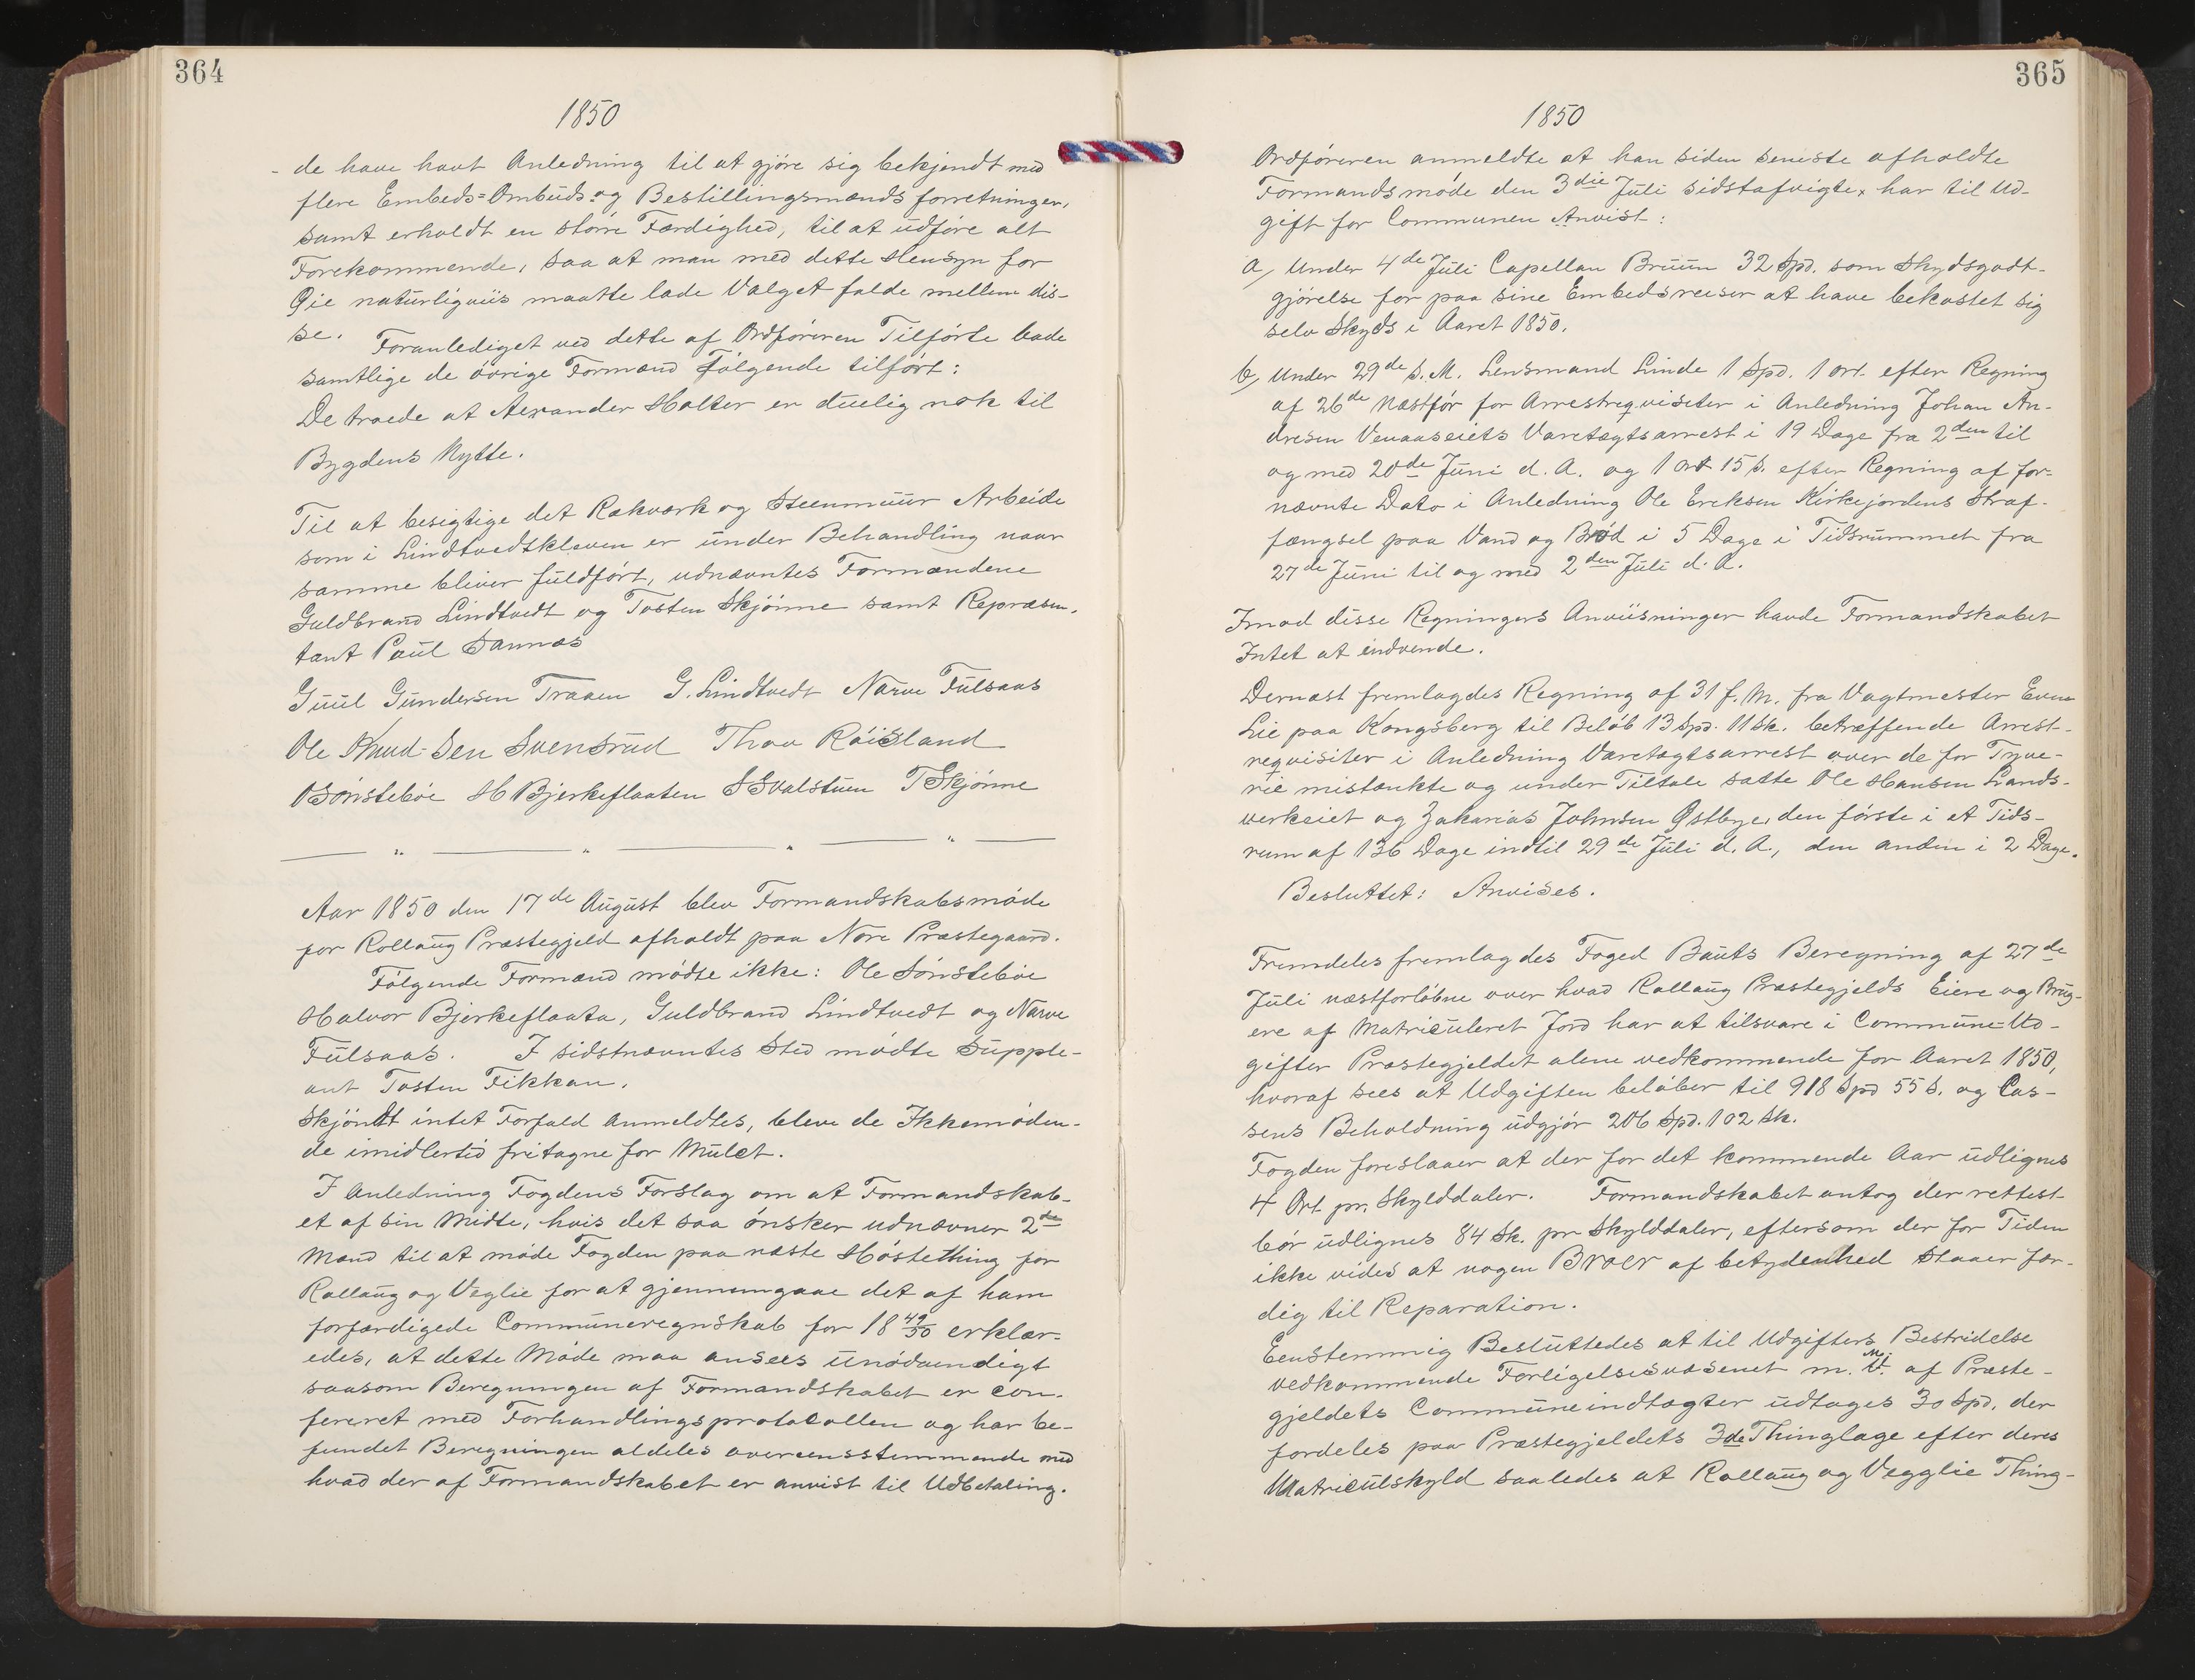 364
1850
- de have havt Anledning til at gjøre sig bekjendt med
flere Embeds= Ombuds= og Bestillingsmænds forretninger,
samt erholdt en större Færdighed, til at udføre alt
Forekommende, saa at man med dette Hensyn for
Øie naturligviis maatte lade Valget falde mellem dis-
se.
Foranlediget ved dette af Ordføreren Tilförte bade
samtlige de övrige Formænd Følgende tilført:
De troede at Alexander Holter er duelig nok til
Bygdens Nytte.
Til at besigtige det Rækværk og Steenmuur Arbeide
som i Lindtvedtkleven er under Behandling naar
samme bliver fuldført, udnævntes Formændene
Guldbrand Lindtvedt og Tosten Skjönne samt Repræsen-
tant Poul Sannæs
Guul Gundersen Traaen G. Lindtvedt Narve Fulsaas
Ole Knud-Sen Svensrud Thov Röisland
O Sönsteböe H Bjerkeflaaten S Svalstuen T Skjönne
Aar 1850 den 17de August blev Formandskabsmøde
for Rollaug Præstegjeld afholdt paa Nore Præstegaard.
Følgende Formænd mødte ikke: Ole Sönsteböe
Halvor Bjerkeflaata, Guldbrand Lindtvedt og Narve
Fulsaas. I sidstnævntes Sted mødte Supple-
ant Tosten Fikkan.
Skjöndt intet Forfald anmeldtes, bleve de Ikkemøden-
de imidlertid fritagne for Mulct.
I Anledning Fogdens Forslag om at Formandskab-
et af sin Midte, hvis det saa ønsker udnævner 2de
Mænd til at møde Fogden paa næste Høstething for
Rollaug og Veglie for at gjennemgaae det af ham
forfærdigede Communeregnskab for 18 49/50 erklær-
edes, at dette Møde maa ansees unødvendigt
saasom Beregningen af Formandskabet er con-
fereret med Forhandlingsprotocollen og har be-
fundet Beregningen aldeles overeensstemmende med
hvad der af Formandskabet er anvist til Udbetaling.
365
1850
Ordføreren anmeldte at han siden seneste afholdte
Formandsmøde den 3die Juli sidstafvigte, har til Ud-
gift for Communen Anvist:
a, Under 4de Juli Capellan Bruun 32 Spd. som Skydsgodt-
gjörelse for paa sine Embedsreiser at have bekostet sig
selv Skyds i Aaret 1850.
b, Under 29de s. M. Lensmand Linde 1 Spd. 1 ort efter Regning
af 26de Næstfør for Arrestreqvisiter i Anledning Johan An-
dresen Venaaseiets Varetægtsarrest i 19 Dage fra 2den til
og med 20de Juni d. A. og 1 Ort 15 s. efter Regning af for-
nævnte Dato i Anledning Ole Ereksen Kirkejordens Straf-
fængsel paa Vand og Brød i 5 Dage i Tidsrummet fra
27de Juni til og med 2den Juli d. A.
Imod disse Regningers Anviisninger havde Formandskabet
Intet at indvende.
Dernæst fremlagdes Regning af 31 f. M. fra Vagtmester Even
Lie paa Kongsberg til Beløb 13 Spd. 11 Sk. betræffende Arrest-
reqvisiter i Anledning Varetægtsarrest over de for Tyve-
rie mistænkte og under Tiltale satte Ole Hansen Lands-
verkeiet og Zakarias Johnsen Østbye, den første i et Tids-
rum af 136 Dage indtil 29de Juli d. A., den anden i 2 Dage.
Besluttet: Anvises.
Fremdeles fremlagdes Foged Bauts Beregning af 27de
Juli næstforløbne over hvad Rollaug Præstegjelds Eiere og Brug-
ere af Matriculeret Jord har at tilsvare i Commune-Ud-
gifter Præstegjeldet alene vedkommende for Aaret 1850,
hvoraf sees at Udgiften beløber til 918 Spd 55 s. og Cas-
sens Beholdning udgjør 206 Spd. 102 Sk.
Fogden foreslaaer at der for det kommende Aar udlignes
4 Ort pr. Skylddaler. Formandskabet antog der rettest
bör udlignes 84 Sk. pr Skylddaler, eftersom der for Tiden
ikke vides at nogen Broer af betydenhed staaer fær-
dig til Reparation.
Eenstemmig Besluttedes at til Udgifters Bestridelse
vedkommende Forligelsesvæsenet m. V. af Præste-
gjeldets Communeindtægter udtages 30 Spd. der
fordeles paa Præstegjeldets 3de Thinglage efter deres
Matriculskyld saaledes at Rollaug og Vegglie Thing-